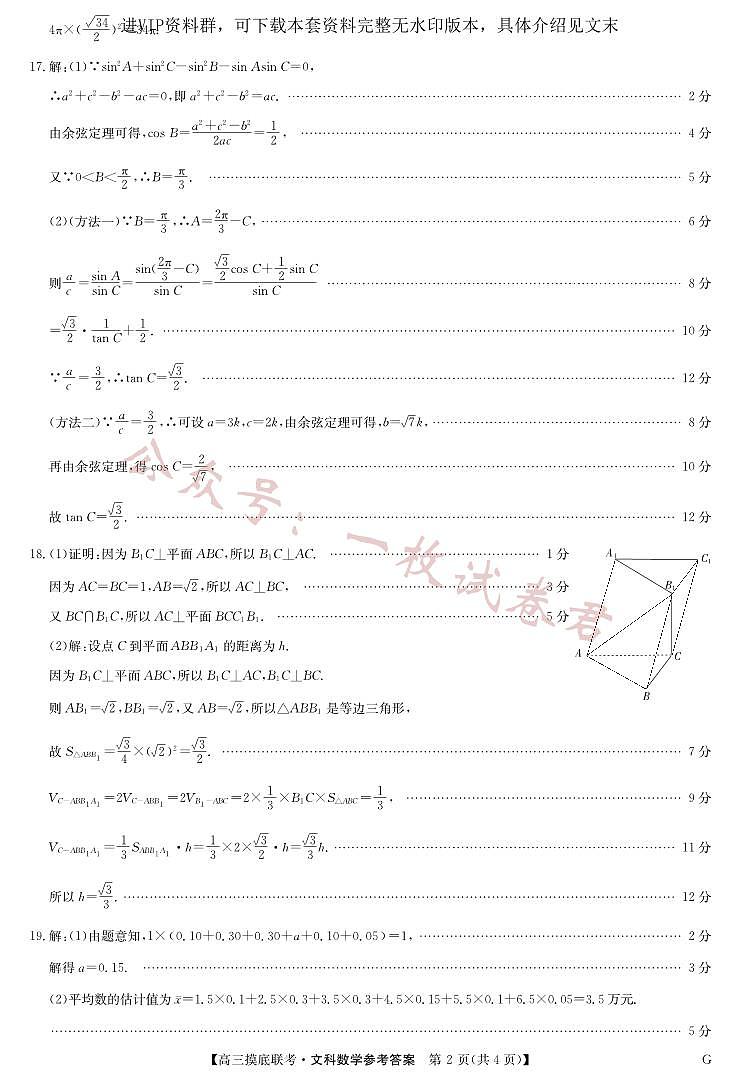 进VIP资料群，可下载本套资料完整无水印版本，具体介绍见文末
17. 解:(1)∵sin²A+sin²C−sin²B−sin Asin C=0,
∴a²+c²−b²−ac=0,即 a²+c²−b²=ac. …… 2 分
由余弦定理可得,cos B=(a²+c²−b²)/(2ac)=1/2, …… 4 分
又∵0<B<π/2,∴B=π/3. …… 5 分
(2)(方法一)∵B=π/3,∴A=2π/3−C, …… 6 分
则 a/c=sin A/sin C=sin(2π/3−C)/sin C=(√3/2 cos C+1/2 sin C)/sin C …… 8 分
=√3/2·1/tan C+1/2. …… 10 分
∵a/c=3/2,∴tan C=√3/2. …… 12 分
(方法二)∵a/c=3/2,∴可设 a=3k,c=2k,由余弦定理可得,b=√7k, …… 8 分
再由余弦定理,得 cos C=2/√7, …… 10 分
故 tan C=√3/2. …… 12 分
18. (1)证明:因为 B₁C⊥平面 ABC,所以 B₁C⊥AC. …… 1 分
因为 AC=BC=1,AB=√2,所以 AC⊥BC, …… 3 分
又 BC∩B₁C,所以 AC⊥平面 BCC₁B₁. …… 5 分
(2)解:设点 C 到平面 ABB₁A₁ 的距离为 h.
因为 B₁C⊥平面 ABC,所以 B₁C⊥AC,B₁C⊥BC.
则 AB₁=√2,BB₁=√2,又 AB=√2,所以△ABB₁ 是等边三角形,
故 S△ABB₁=√3/4×(√2)²=√3/2. …… 7 分
V_C−ABB₁A₁=2V_C−ABB₁=2V_B₁−ABC=2×1/3×B₁C×S△ABC=1/3, …… 9 分
V_C−ABB₁A₁=1/3 S_ABB₁A₁·h=1/3×2×√3/2·h=√3/3 h. …… 11 分
所以 h=√3/3. …… 12 分
A₁
C₁
B₁
A
C
B
19. 解:(1)由题意知,1×(0.10+0.30+0.30+a+0.10+0.05)=1, …… 2 分
解得 a=0.15. …… 3 分
(2)平均数的估计值为 x̄=1.5×0.1+2.5×0.3+3.5×0.3+4.5×0.15+5.5×0.1+6.5×0.05=3.5 万元.
…… 5 分
公众号：一枚试卷君
【高三摸底联考·文科数学参考答案 第 2 页(共 4 页)】 G